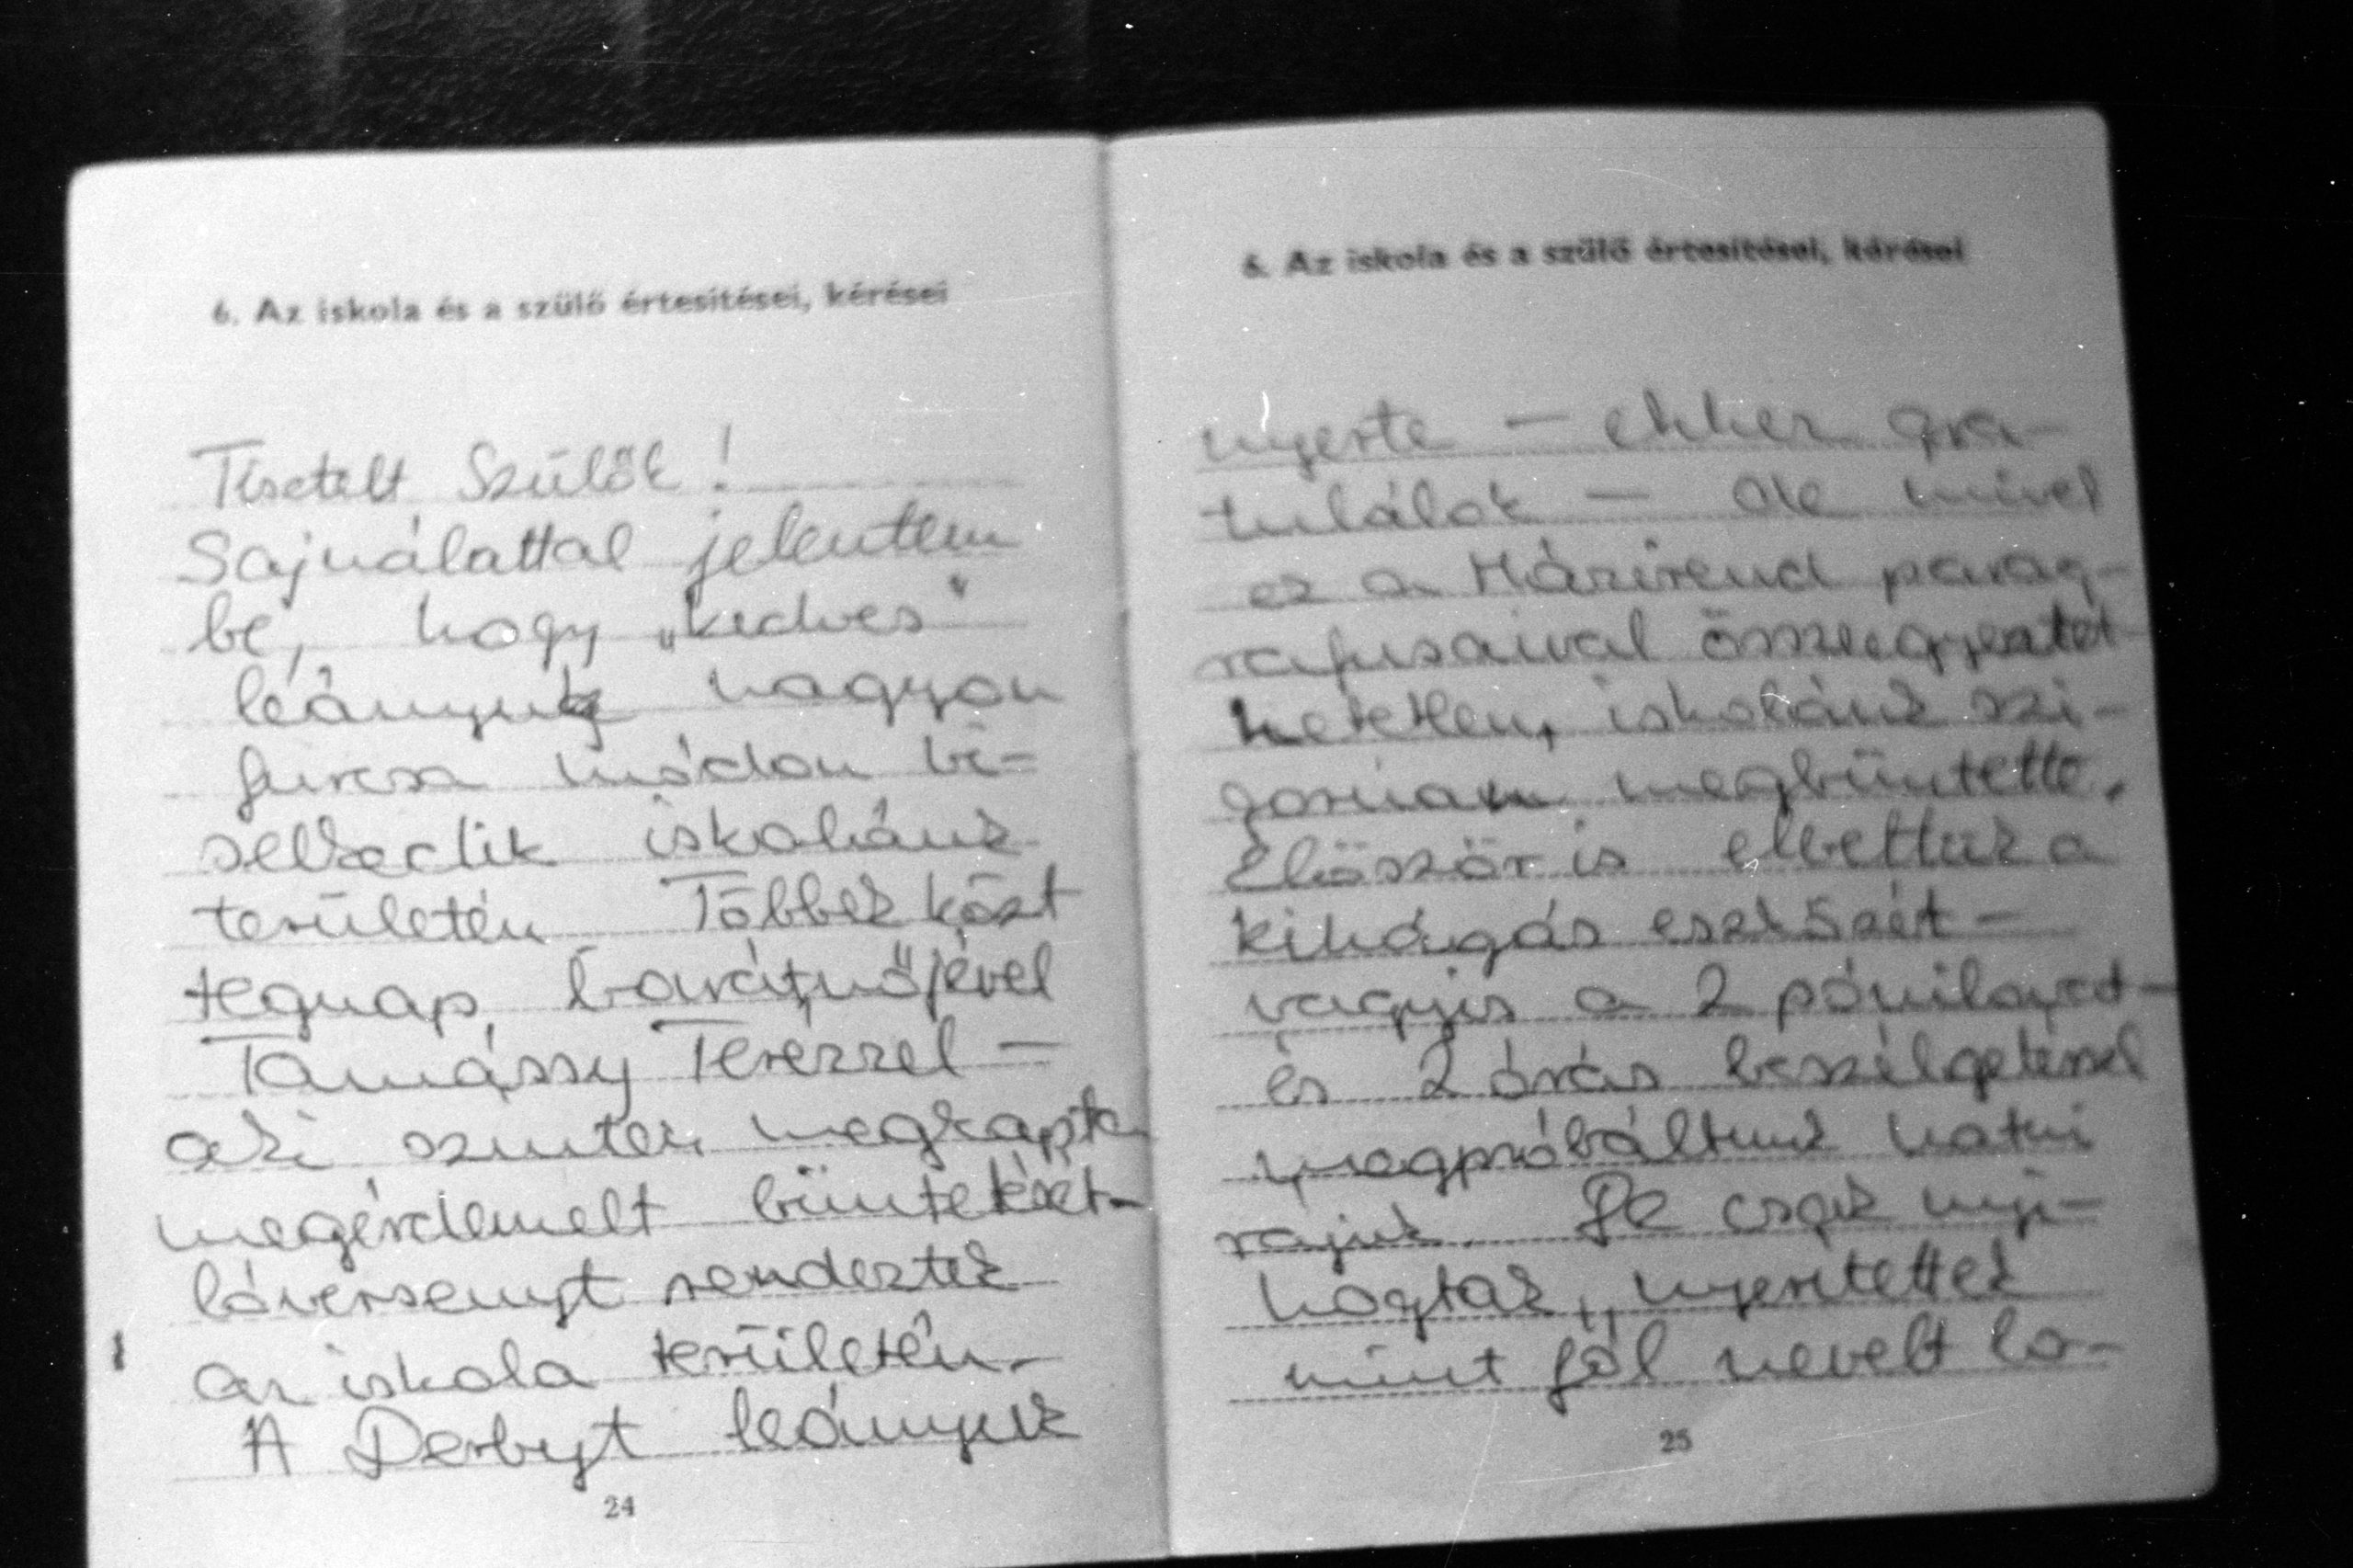 6. Az iskola és a szülő értesítései, kérései
Tisztelt Szülők!
Sajnálattal jelentem
be, hogy „kedves”
leányuk nagyon
furcsa módon vi-
selkedik iskolánk
területén Többek közt
tegnap, barátnőjével
Tamássy Terézzel —
aki szintén megkapta
megérdemelt büntetését-
lóversenyt rendeztek
az iskola területén.-
A Derbyt leányuk
24
6. Az iskola és a szülő értesítései, kérései
nyerte — ehhez gra-
tulálok — de mivel
ez a Házirend parag-
rafusaival összeegyeztet-
hetetlen, iskolánk szi-
gorúan megbüntette.
Először is elvettük a
kihágás eszközét —
vagyis a 2 pónilovat —
és 2 órás beszélgetéssel
megpróbáltunk hatni
rájuk. De csak nyi-
hogtak, nyerítettek
mint jól nevelt lo-
25